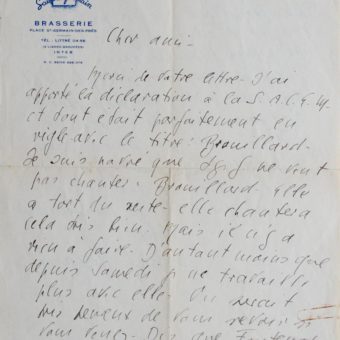 BRASSERIE
PLACE ST-GERMAIN-DES-PRÉS
PARIS
TÉL. : LITTRÉ
INTER
Cher ami -
Merci de votre lettre - J'ai
apporté la déclaration à la S.A.C.E.M.
et tout était parfaitement en
règle avec le titre : Brouillard -
Je suis navré que ne veut
pas chanter - Brouillard - elle
a tort du reste - elle chantera
cela très bien. Mais il n'y a
rien à faire - D'autant moins que
depuis samedi je ne travaille
plus avec elle - On serait
très heureux de vous revoir si
vous venez - que